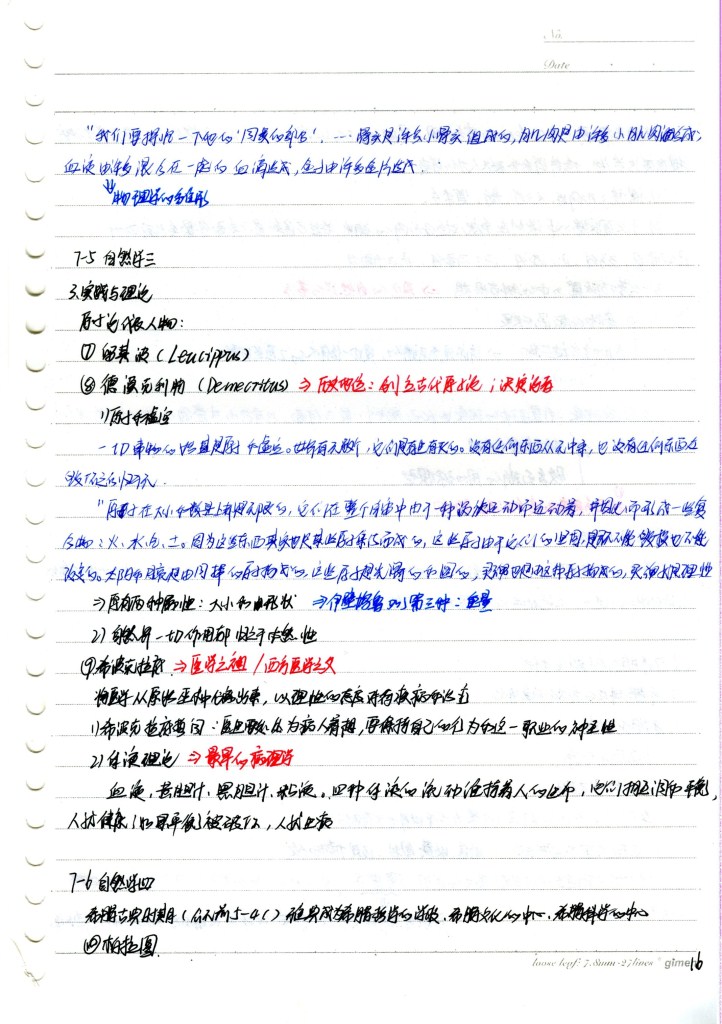 No.
Date
"我们要探地一下他的'同类的部分'. … 骨头是许多小骨头组成的,肌肉是由许多小肌肉组成;
血液由许多混合在一起的血滴造成,金子由许多金片造成
物理学的雏形
7-5 自然学三
3.实践与理论
原子论代表人物:
⑦ 留基波(Leucippus)
⑧ 德谟克利特(Democritus) ⇒ 历史地位:创立古代原子论;决定论者
1)原子和虚空
一切事物的始基是原子和虚空。世界有无数个,它们是有生有灭的。没有任何东西从无中来,也没有任何东西在
毁坏之后归于无.
"原子在大小和数量上都是无限的,它们在整个宇宙中由于一种涡旋运动而运动着,并因此而形成一些复
合物:火、水、气、土。因为这些东西其实也是某些原子集结而成的,这些原子由于它们的坚固,是既不能毁损也不能
改变的。太阳和月亮是由同样的原子构成的,这些原子是光滑的和圆的,灵魂也是由这种原子构成的,灵魂就是理性
⇒ 原子有两种属性:大小和形状 ⇒伊壁鸠鲁 第三种:重量
2) 自然界一切作用都归之于必然性
⑨希波克拉底 ⇒医学之祖/西方医学之父
将医学从原始巫术中分离出来,以理性的态度对待疾病和治疗
1)希波克拉底誓词:医生要处处为病人着想,要保持自己的行为和这一职业的神圣性
2)体液理论 ⇒最早的病理学
血液、黄胆汁、黑胆汁、粘液。四种体液的流动维持着人的生命,它们相互调和平衡,
人就健康,如果平衡被破坏,人就生病
7-6 自然学四
希腊古典时期(公元前5-4C) 雅典成为希腊哲学的学校、希腊文化的中心、希腊科学的中心
⑩柏拉图
loose leaf: 7.8mm-27lines gimen
16